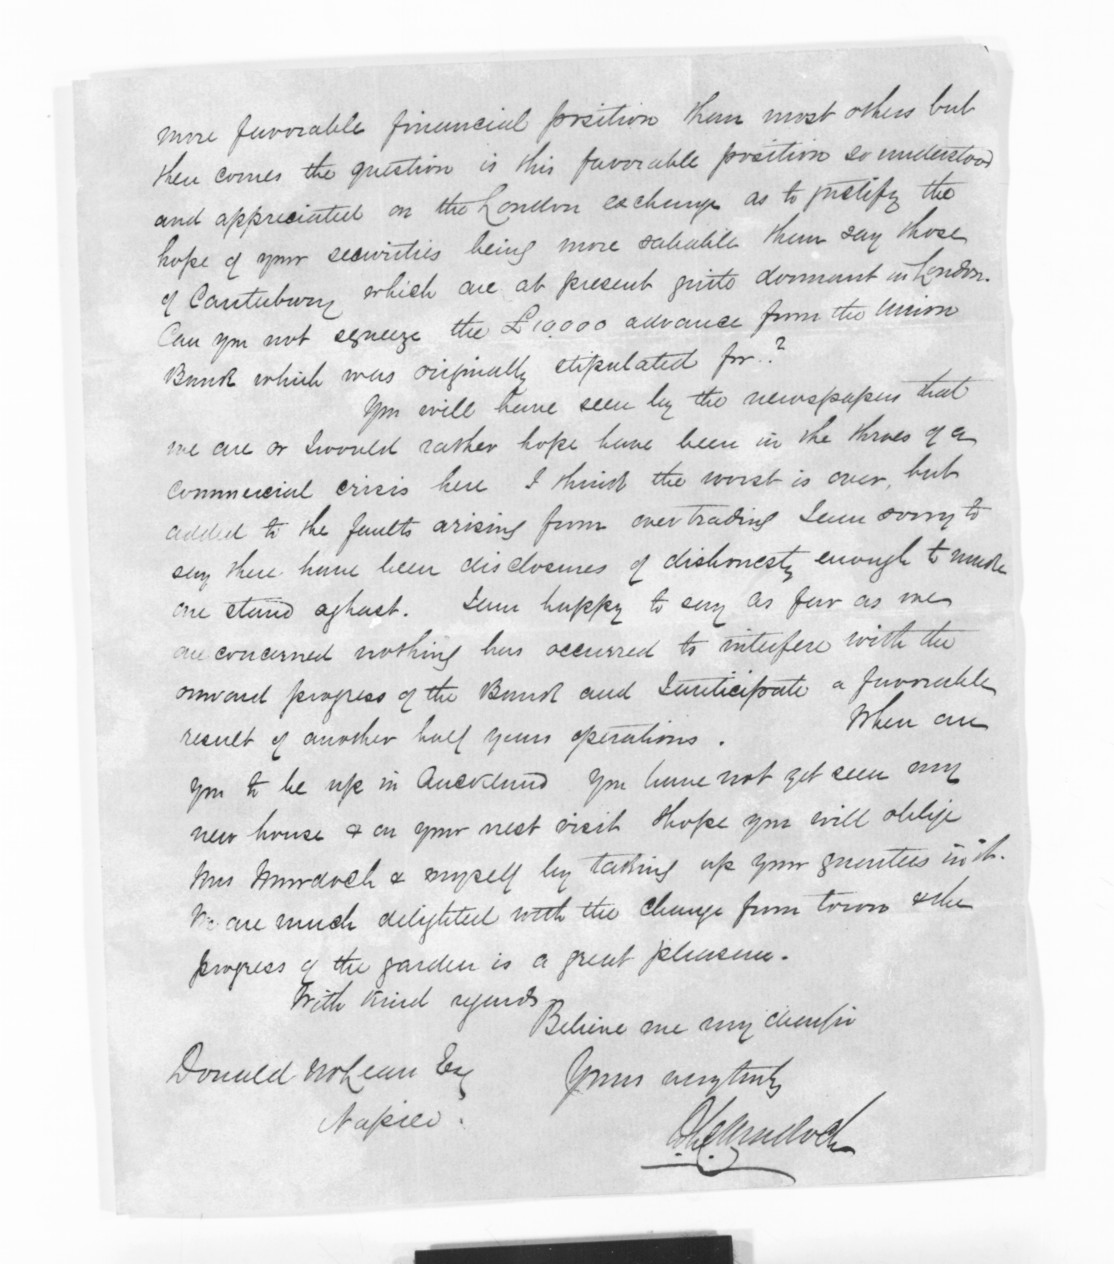 more favorable financial position than most others but
then comes the question is this favorable position so understood
and appreciated on the London exchange as to justify the
hope of your securities being more saleable than say those
of Canterbury which are at present quite dormant in London.
Can you not squeeze the £10.000 advance from the Union
Bank which was originally stipulated for..?
You will have seen by the newspapers that
we are or I would rather hope have been in the throes of a
commercial crisis here I think the worst is over, but
added to the faults arising from over trading I am sorry to
say there have been disclosures of dishonesty enough to make
one stand aghast. I am happy to say as far as we
are concerned nothing has occurred to interfere with the
onward progress of the Bank and I anticipate a favorable
result of another half years operations. When are
you to be up in Auckland You have not yet seen my
new house & on your next visit I hope you will oblige
Mrs Murdoch & myself by taking up your quarters in it.
We are much delighted with the change from town & the
progress of the garden is a great pleasure.
With kind regards
Believe me my dear Sir
Donald McLean Esq Yours very truly
Napier. Murdoch